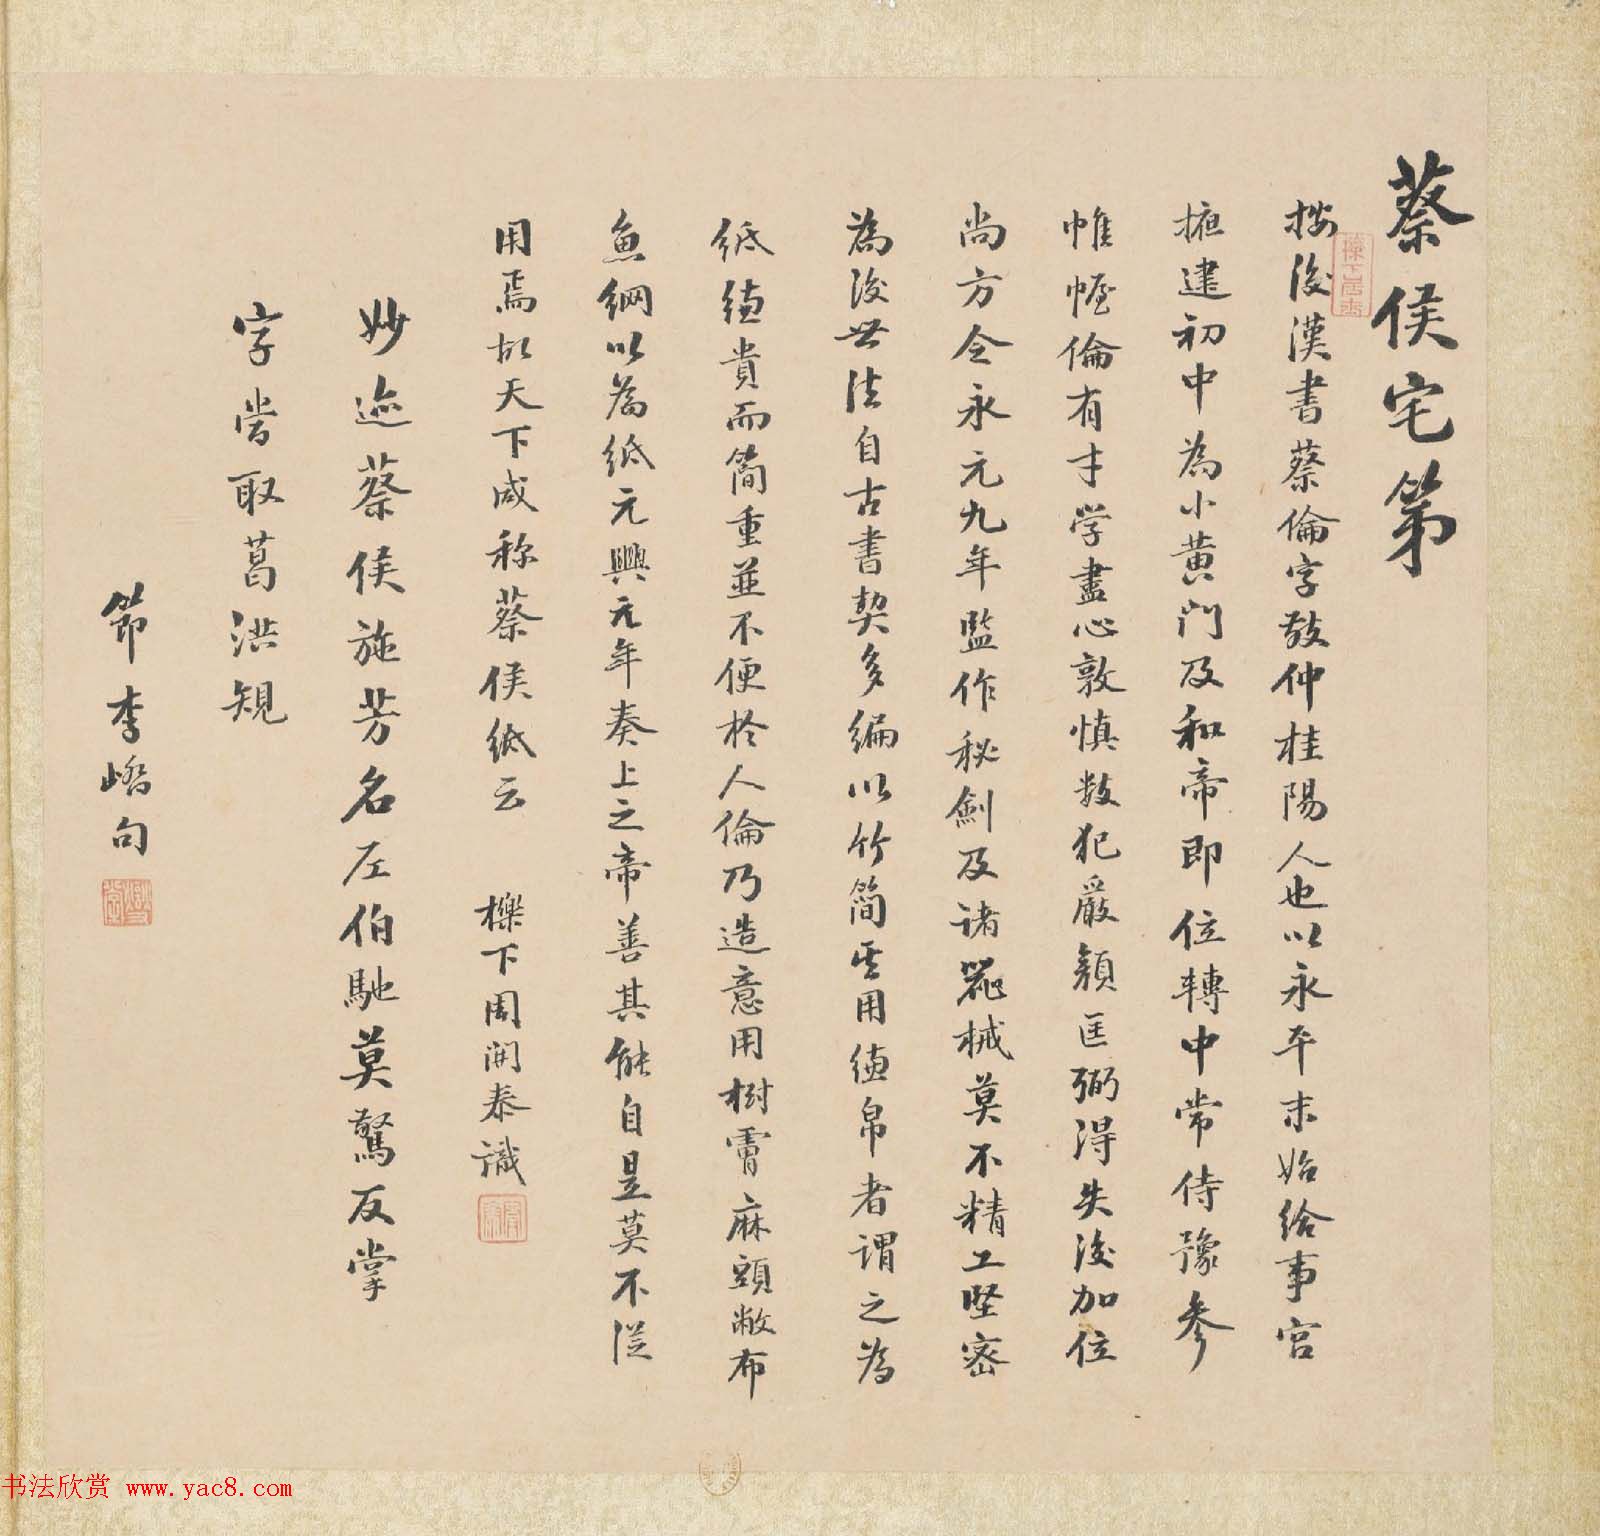 蔡侯宅第
按後漢書蔡倫字敬仲桂陽人也以永平末始給事宮
掖建初中為小黃門及和帝即位轉中常侍豫參
帷幄倫有才学盡心敦慎数犯嚴顏匡弼得失後加位
尚方令永元九年監作秘劍及诸器械莫不精工堅密
為後世法自古書契多編以竹简其用縑帛者谓之為
紙縑貴而简重並不便於人倫乃造意用樹膚麻頭敝布
魚網以為紙元興元年奏上之帝善其能自是莫不從
用焉故天下咸称蔡侯紙云 櫟下周開泰識
妙迹蔡侯施芳名左伯馳莫驚反掌
字当取葛洪規
節李嶠句
櫟下居士
书法欣赏 www.yac8.com